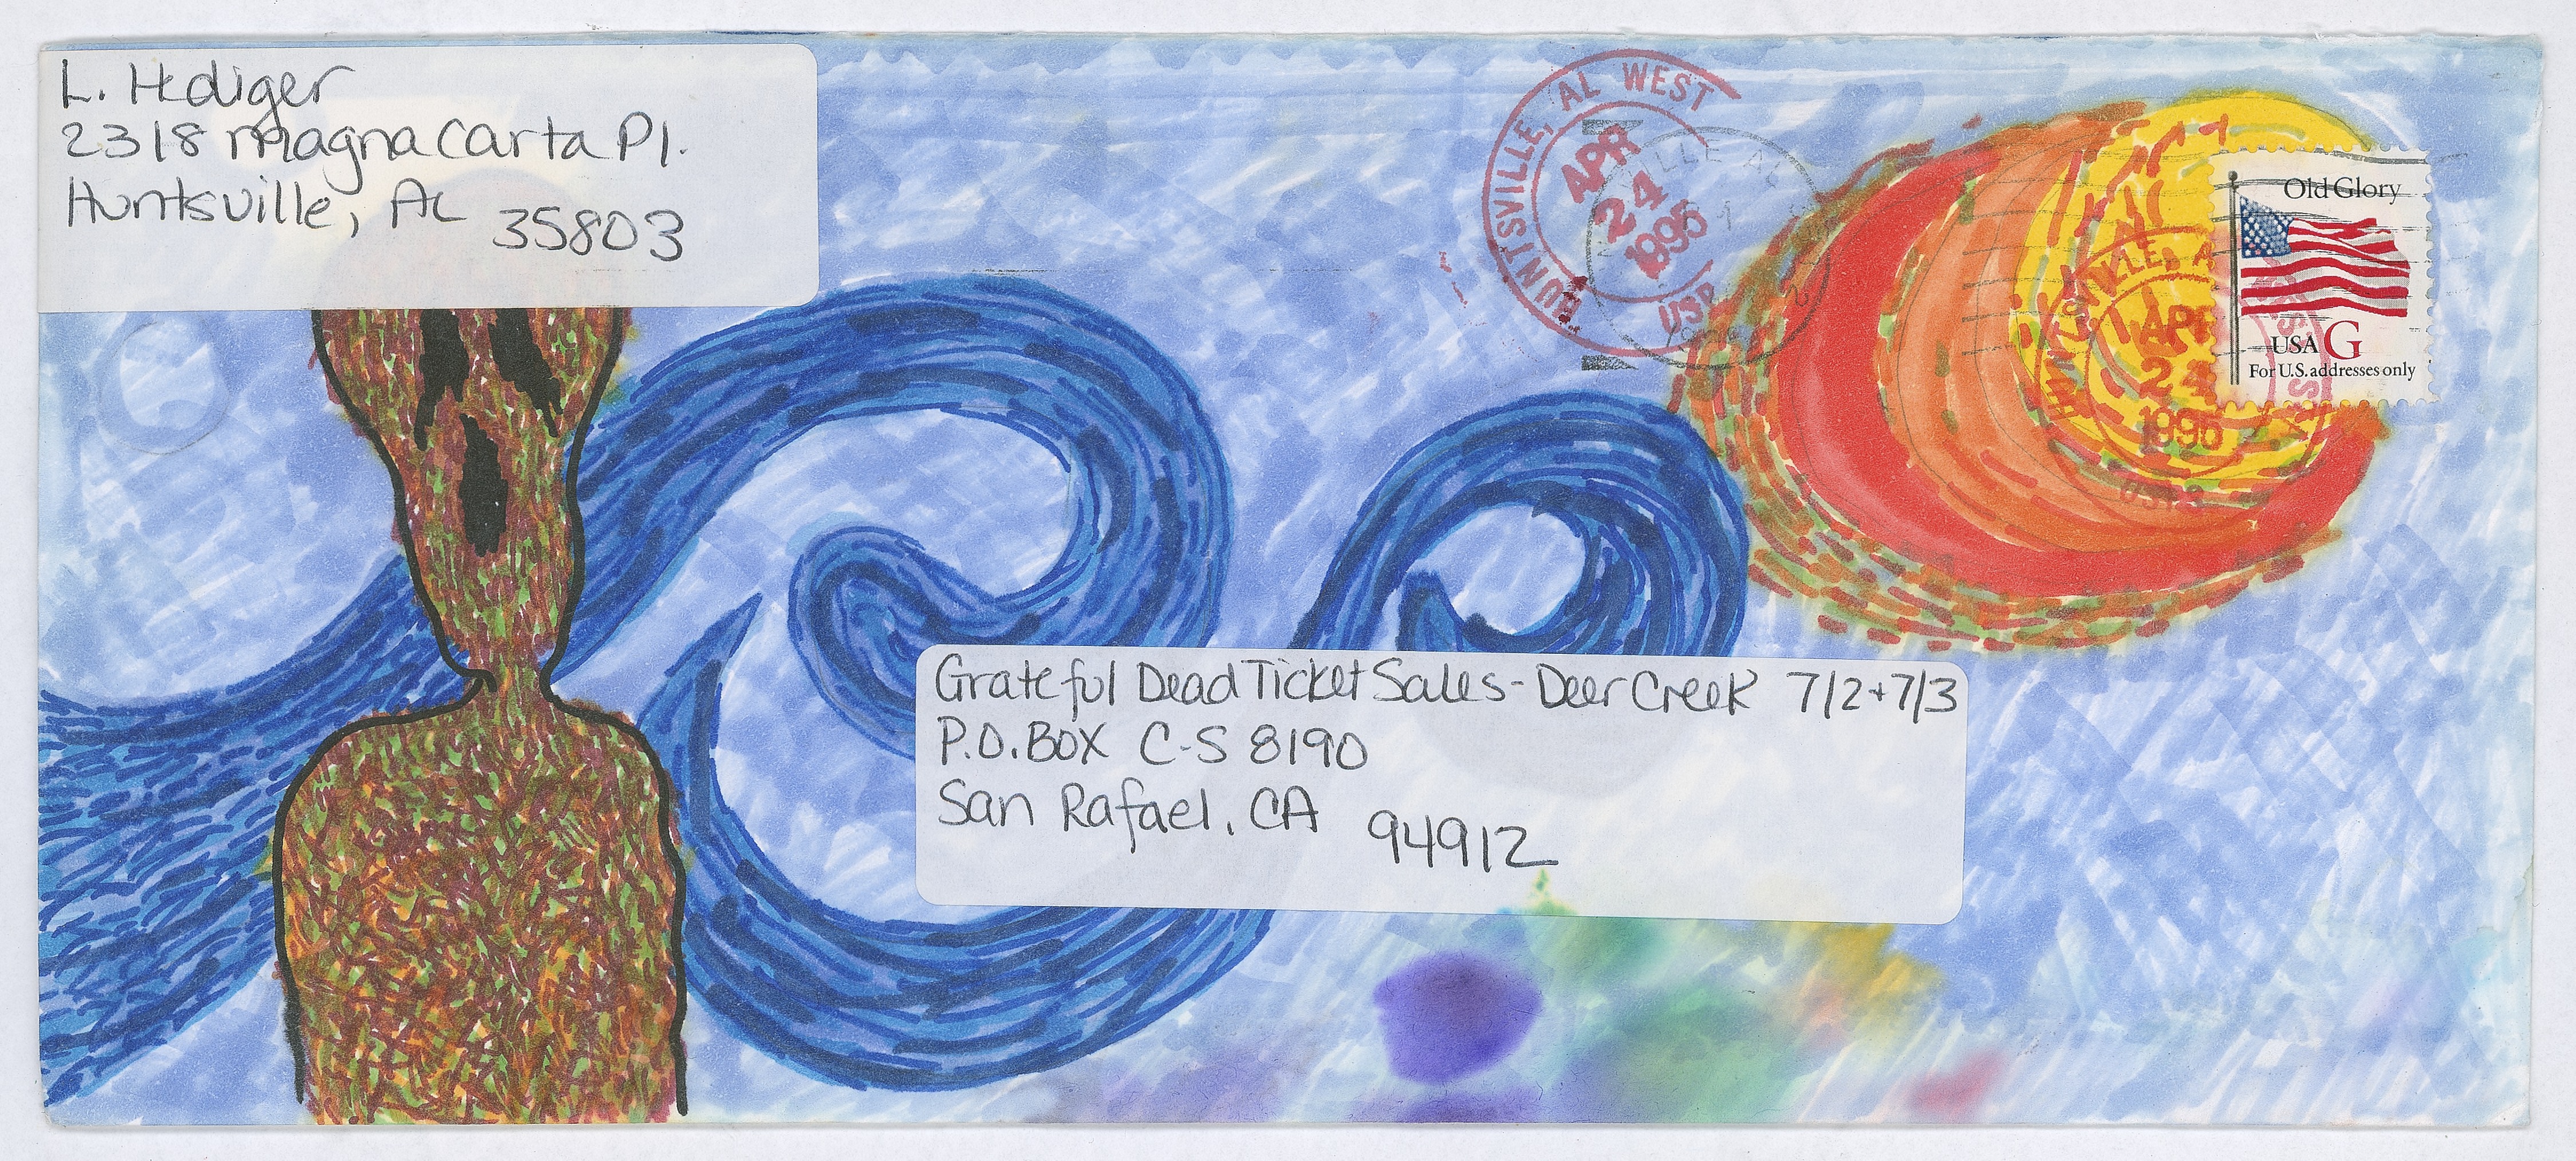 L. Hediger
2318 Magna Carta Pl.
Huntsville, AL 35803
HUNTSVILLE, AL WEST
APR
24
1995
USPS
Old Glory
USA G
For U.S. addresses only
APR
24
1995
USPS
Grateful Dead Ticket Sales - Deer Creek 7/2 + 7/3
P.O. Box C-S 8190
San Rafael, CA 94912